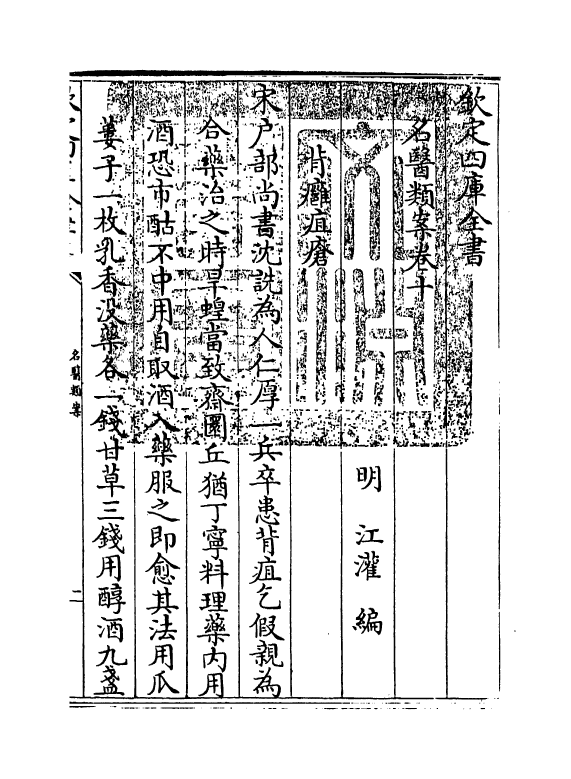 欽定四庫全書
名醫類案卷十
明 江瓘 編
背癰疽瘡
宋户部尚書沈詵為人仁厚一兵卒患背疽乞假親為
合藥治之時旱蝗當致齋圜丘猶丁寧料理藥内用
酒恐市酤不中用自取酒入藥服之即愈其法用瓜
蔞子一枚乳香没藥各一錢甘草三錢用醇酒九盞
名醫類案